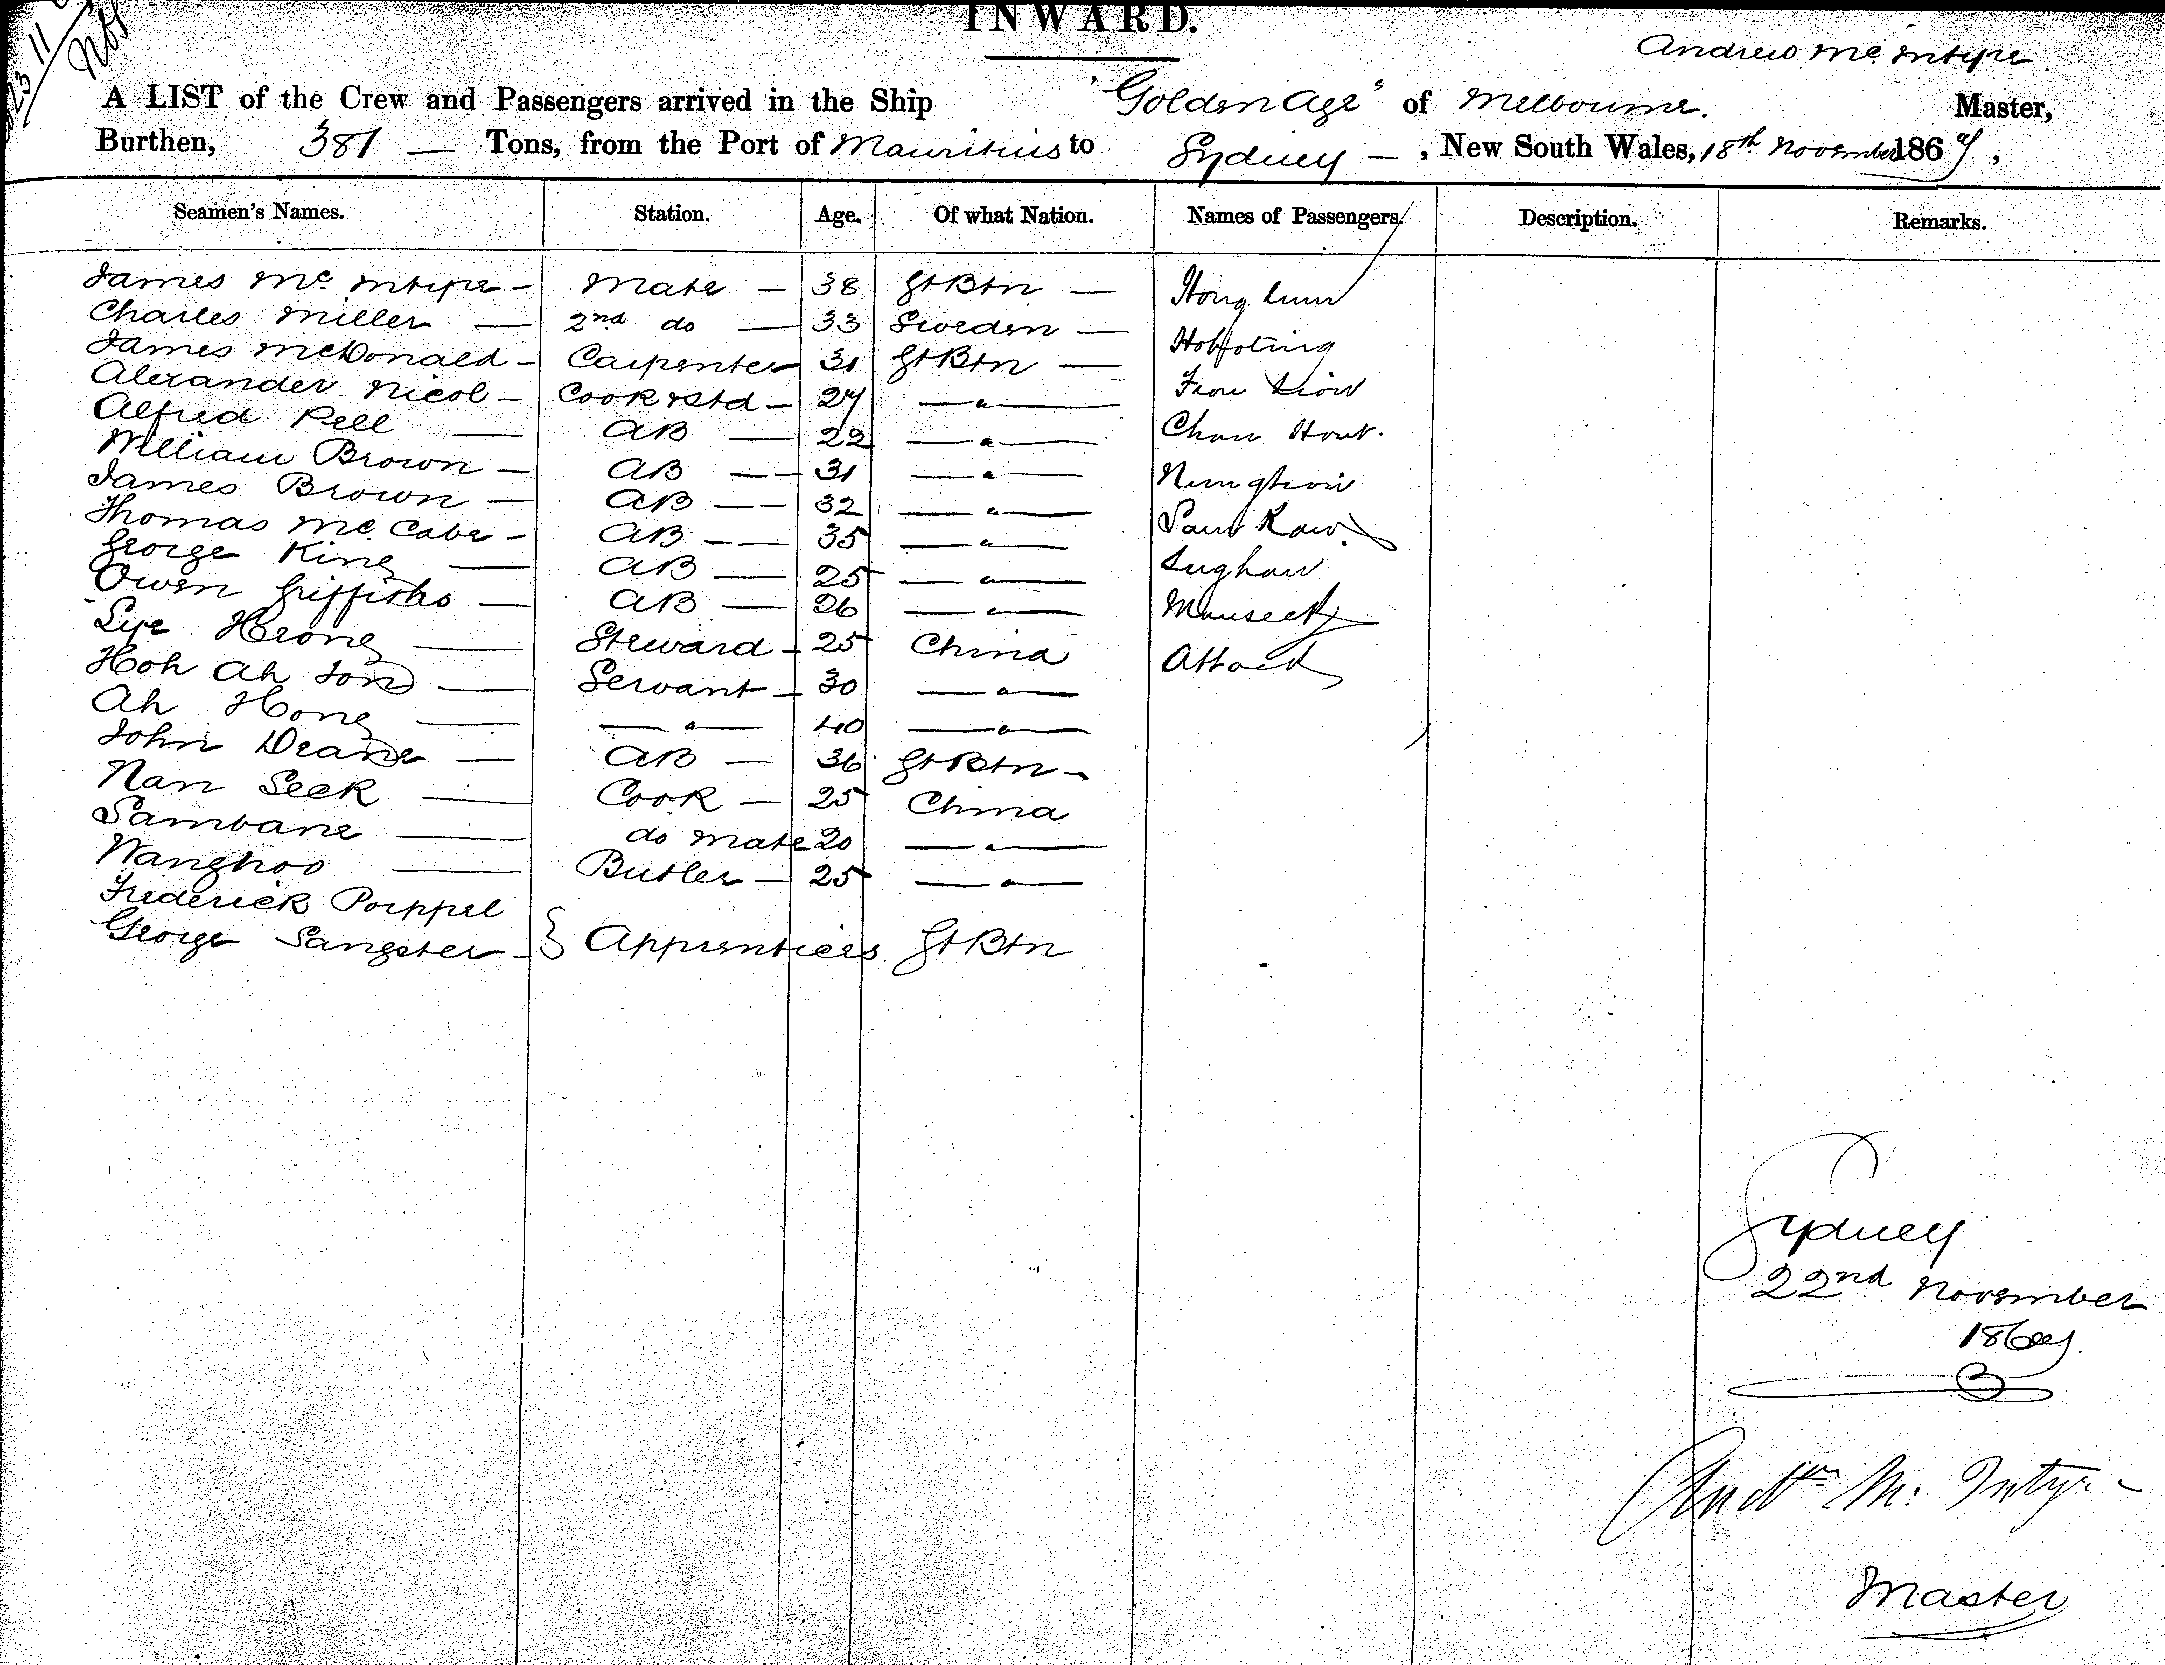 INWARD.
23 11
Andrew Mc Intyre
A LIST of the Crew and Passengers arrived in the Ship "Golden Age" of Melbourne. Master,
Burthen, 381 — Tons, from the Port of Mauritius to Sydney — , New South Wales, 18th November 1867,
Seamen's Names. Station. Age. Of what Nation. Names of Passengers. Description. Remarks.
James Mc Intyre — Mate — 38 Gt Btn — Hong
Charles Miller — 2nd do — 33 Sweden —
James McDonald — Carpenter 31 Gt Btn —
Alexander Nicol — Cook & Std — 27 — " —
Alfred Pell — AB — 22 — " — Chan
William Brown — AB — 31 — " —
James Brown — AB — 32 — " —
Thomas Mc Cabe — AB — 35 — " —
George King — AB — 25 — " —
Owen Griffiths — AB — 26 — " —
Lye Heong — Steward — 25 China
Hoh Ah — Servant — 30 — " —
Ah Hong — — " — 40 — " —
John Deane — AB — 36 Gt Btn —
Nan Seek — Cook — 25 China
Sambane — do mate 20 — " —
Wanghoo — Butler — 25 — " —
Frederick Poeppel
George Sangster — } Apprentices Gt Btn
Sydney
22nd November
1867
Andw Mc Intyre
Master